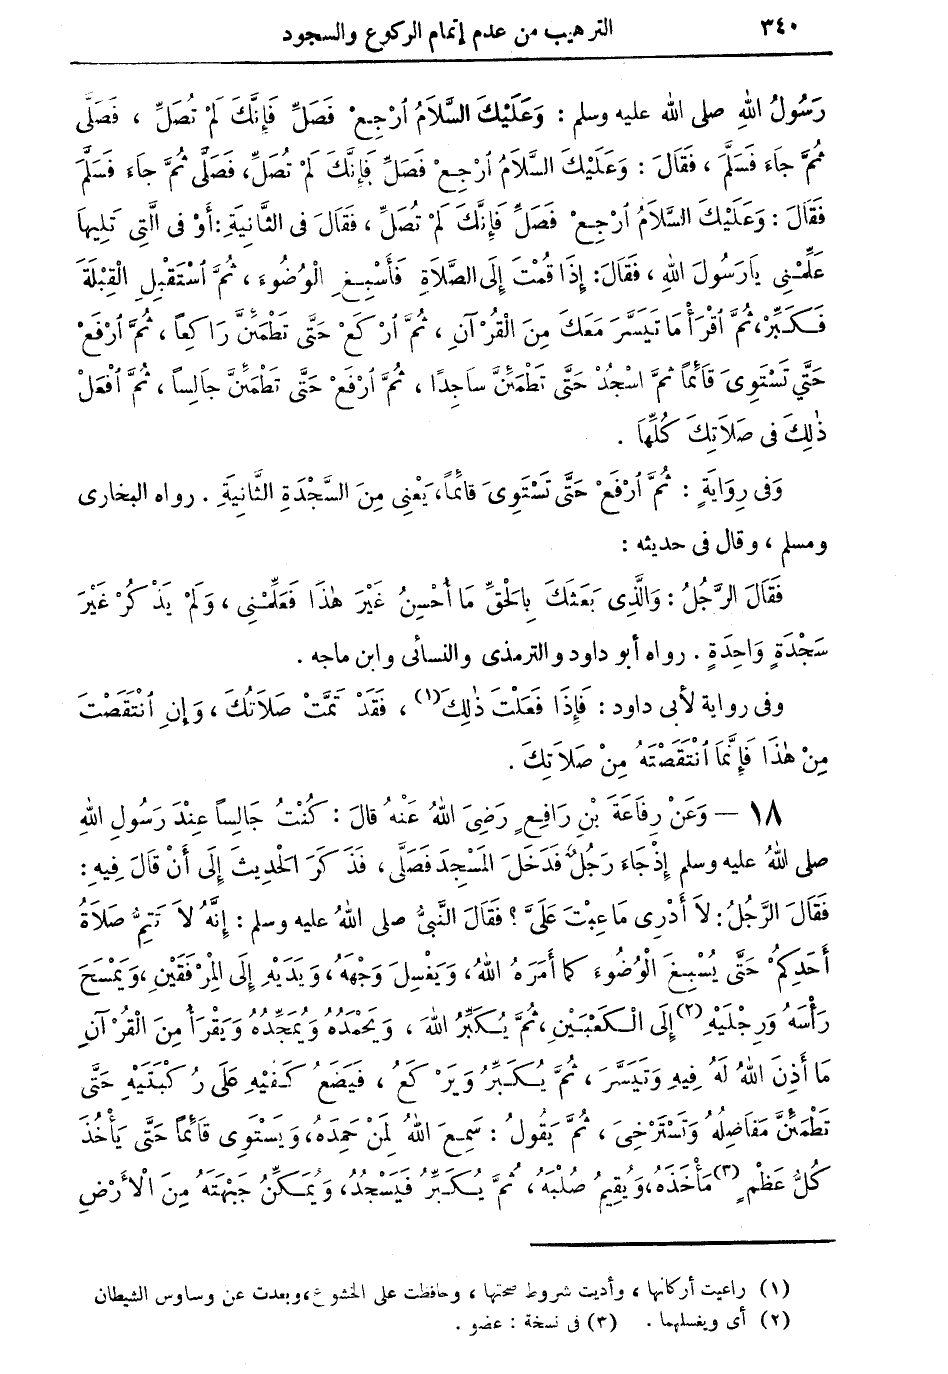 ٣٤٠ الترهيب من عدم إتمام الركوع والسجود
رَسُولُ اللهِ صلى الله عليه وسلم : وَعَلَيْكَ السَّلَامُ ٱرْجِعْ فَصَلِّ فَإِنَّكَ لَمْ تُصَلِّ ، فَصَلَّى
ثُمَّ جَاءَ فَسَلَّمَ ، فَقَالَ : وَعَلَيْكَ السَّلَامُ ٱرْجِعْ فَصَلِّ فَإِنَّكَ لَمْ تُصَلِّ، فَصَلَّى ثُمَّ جَاءَ فَسَلَّمَ
فَقَالَ : وَعَلَيْكَ السَّلَامُ ٱرْجِعْ فَصَلِّ فَإِنَّكَ لَمْ تُصَلِّ ، فَقَالَ فى الثَّانِيَةِ : أَوْ فى الَّتِى تَلِيهَا
عَلِّمْنِى يَارَسُولَ اللهِ ، فَقَالَ : إِذَا قُمْتَ إِلَى الصَّلَاةِ فَأَسْبِغِ الْوُضُوءَ ، ثُمَّ ٱسْتَقْبِلِ الْقِبْلَةَ
فَكَبِّرْ، ثُمَّ اقْرَأْ مَا تَيَسَّرَ مَعَكَ مِنَ الْقُرْآنِ ، ثُمَّ ارْكَعْ حَتَّى تَطْمَئِنَّ رَاكِعاً ، ثُمَّ ٱرْفَعْ
حَتَّى تَسْتَوِىَ قَائِماً ثُمَّ اسْجُدْ حَتَّى تَطْمَئِنَّ سَاجِدًا ، ثُمَّ ٱرْفَعْ حَتَّى تَطْمَئِنَّ جَالِساً ، ثُمَّ افْعَلْ
ذٰلِكَ فى صَلَاتِكَ كُلِّهَا .
وَفى رِوَايَةٍ : ثُمَّ ٱرْفَعْ حَتَّى تَسْتَوِىَ قَائِماً، يَعْنِى مِنَ السَّجْدَةِ الثَّانِيَةِ . رواه البخارى
ومسلم ، وقال فى حديثه :
فَقَالَ الرَّجُلُ : وَالَّذِى بَعَثَكَ بِالْحَقِّ مَا أُحْسِنُ غَيْرَ هٰذَا فَعَلِّمْنِى ، وَلَمْ يَذْكُرْ غَيْرَ
سَجْدَةٍ وَاحِدَةٍ . رواه أبو داود والترمذى والنسائى وابن ماجه .
وفى رواية لأبى داود : فَإِذَا فَعَلْتَ ذٰلِكَ (١) ، فَقَدْ تَمَّتْ صَلَاتُكَ ، وَإِنِ ٱنْتَقَصْتَ
مِنْ هٰذَا فَإِنَّمَا ٱنْتَقَصْتَهُ مِنْ صَلَاتِكَ .
١٨ — وَعَنْ رِفَاعَةَ بْنِ رَافِعٍ رَضِىَ اللهُ عَنْهُ قَالَ : كُنْتُ جَالِساً عِنْدَ رَسُولِ اللهِ
صلى اللهُ عليه وسلم إِذْ جَاءَ رَجُلٌ فَدَخَلَ الْمَسْجِدَ فَصَلَّى ، فَذَكَرَ الْحَدِيثَ إِلَى أَنْ قَالَ فِيهِ :
فَقَالَ الرَّجُلُ : لَا أَدْرِى مَا عِبْتَ عَلَىَّ ؟ فَقَالَ النَّبِىُّ صلى اللهُ عليه وسلم : إِنَّهُ لَا تَتِمُّ صَلَاةُ
أَحَدِكُمْ حَتَّى يُسْبِغَ الْوُضُوءَ كَمَا أَمَرَهُ اللهُ، وَيَغْسِلَ وَجْهَهُ، وَيَدَيْهِ إِلَى الْمِرْفَقَيْنِ، وَيَمْسَحَ
رَأْسَهُ وَرِجْلَيْهِ (٢) إِلَى الْكَعْبَيْنِ، ثُمَّ يُكَبِّرُ اللهَ ، وَيَحْمَدُهُ وَيُمَجِّدُهُ وَيَقْرَأُ مِنَ الْقُرْآنِ
مَا أَذِنَ اللهُ لَهُ فِيهِ وَتَيَسَّرَ ، ثُمَّ يُكَبِّرُ وَيَرْكَعُ ، فَيَضَعُ كَفَّيْهِ عَلَى رُكْبَتَيْهِ حَتَّى
تَطْمَئِنَّ مَفَاصِلُهُ وَتَسْتَرْخِىَ ، ثُمَّ يَقُولُ : سَمِعَ اللهُ لِمَنْ حَمِدَهُ، وَيَسْتَوِى قَائِماً حَتَّى يَأْخُذَ
كُلُّ عَظْمٍ (٣) مَأْخَذَهُ، وَيُقِيمُ صُلْبَهُ ، ثُمَّ يُكَبِّرُ فَيَسْجُدُ، وَيُمَكِّنُ جَبْهَتَهُ مِنَ الْأَرْضِ
(١) راعيت أركانها ، وأديت شروط صحتها ، وحافظت على الخشوع ، وبعدت عن وساوس الشيطان
(٢) أى ويغسلهما . (٣) فى نسخة : عضو .